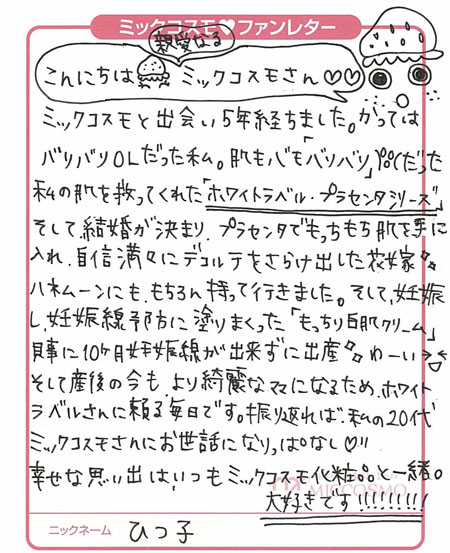 ミックコスモ♥ファンレター
親愛なる
こんにちは ミックコスモさん♡♡
ミックコスモと出会い5年経ちました。かつては
バリバリOLだった私。肌も心も「バリバリ」だった
私の肌を救ってくれた「ホワイトラベル・プラセンタシリーズ」
そして、結婚が決まり、プラセンタでもっちもち肌を手に
入れ、自信満々にデコルテをさらけ出した花嫁
ハネムーンにも、もちろん持って行きました。そして、妊娠
し、妊娠線予防に塗りまくった「もっちり白肌クリーム」
見事に10ヶ月妊娠線が出来ずに出産 わーい
そして産後の今も、より綺麗なママになるため、ホワイト
ラベルさんに頼る毎日です。振り返れば、私の20代
ミックコスモさんにお世話になりっぱなし♡!!
幸せな思い出はいつもミックコスモ化粧品と一緒。
MICCOSMO
大好きです!!!!!!!!!
ニックネーム ひつ子